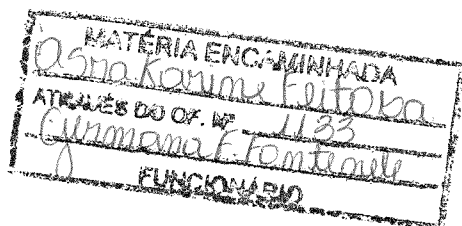 MATÉRIA ENCAMINHADA
Karine Feitosa
ATRAVÉS DO OF. Nº 1133
F. Fontenele
FUNCIONÁRIO